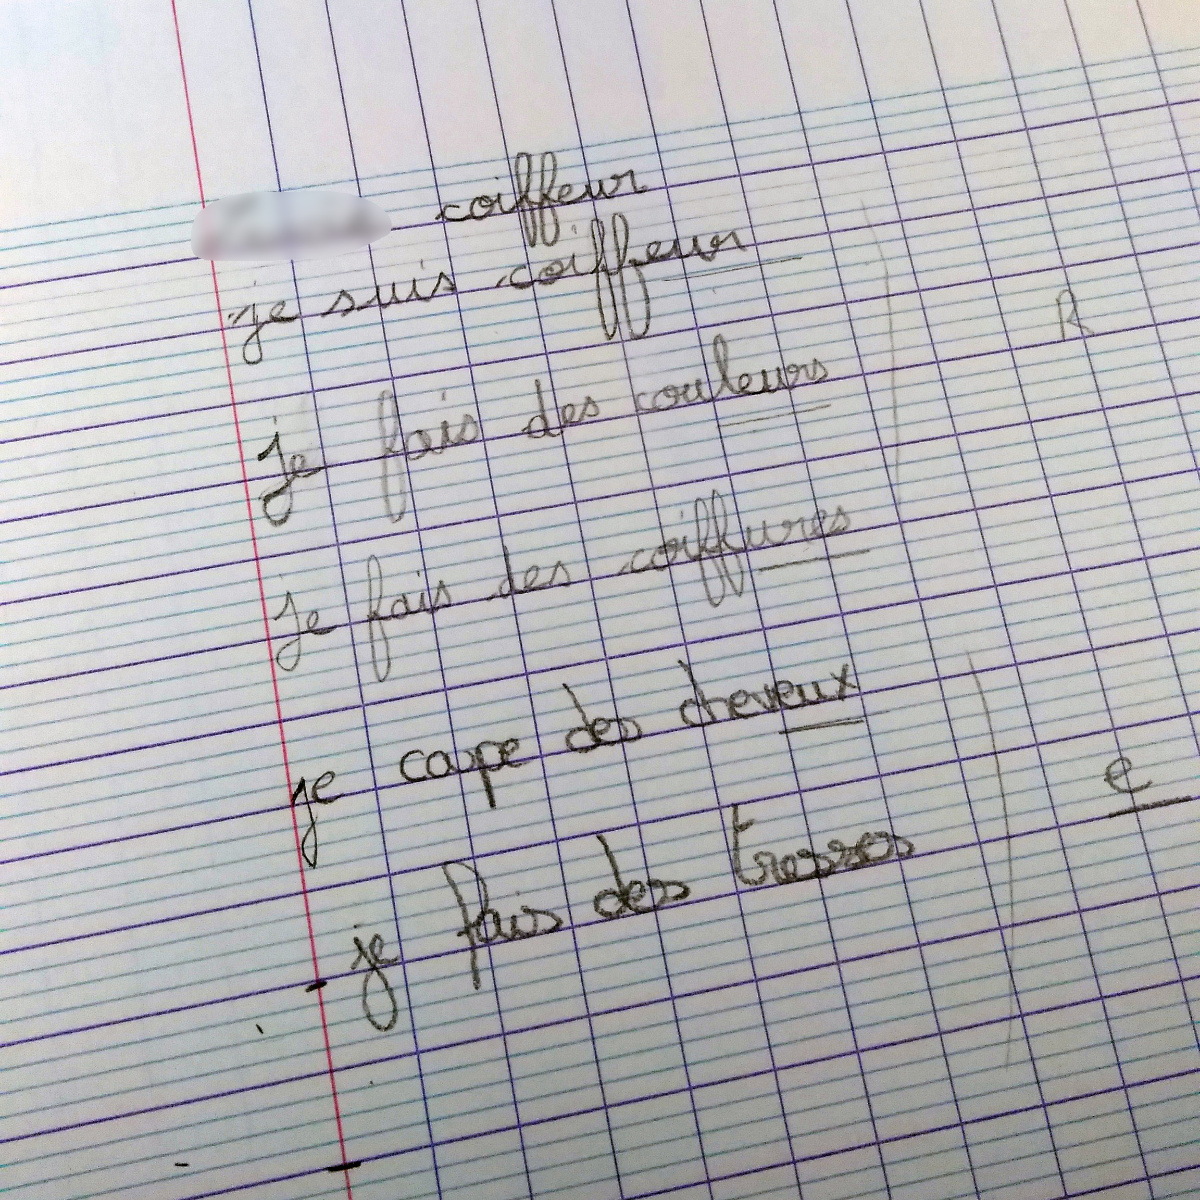 coiffeur
je suis coiffeur
je fais des couleurs
R
je fais des coiffures
je coupe des cheveux
e
je fais des tresses